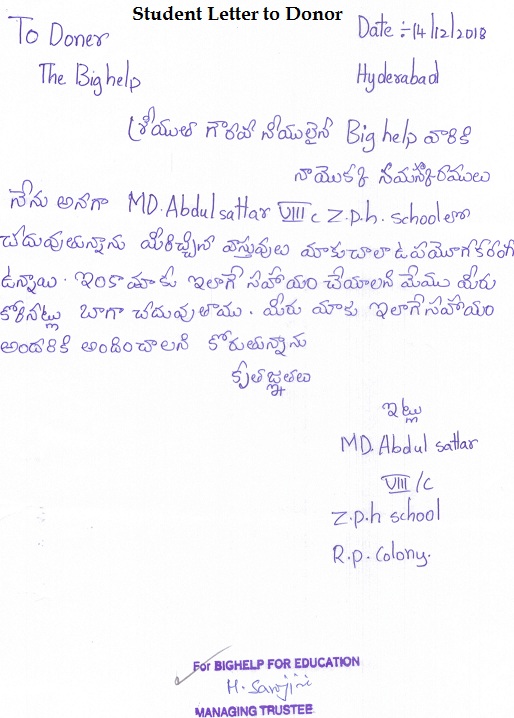 Student Letter to Donor
To Doner
Date :- 14/12/2018
The Big help
Hyderabad
శ్రీయుత గౌరవ నీయులైన Big help వారికి
నాయొక్క నమస్కారములు
నేను అనగా MD. Abdul sattar VIII c Z.p.h. school లో
చదువుతున్నాను మీరిచ్చిన వాస్తువులు మాకుచాలా ఉపయోగకరంగా
ఉన్నాయి. ఇంకా మాకు ఇలాగే సహాయం చేయాలని మేము మీరు
కోరినట్లు బాగా చదువుతాము. మీరు మాకు ఇలాగే సహాయం
అందరికి అందించాలని కోరుతున్నాను
కృతజ్ఞతలు
ఇట్లు
MD. Abdul sattar
VIII/c
Z.p.h school
R.p. Colony.
For BIGHELP FOR EDUCATION
H. Sarojini
MANAGING TRUSTEE